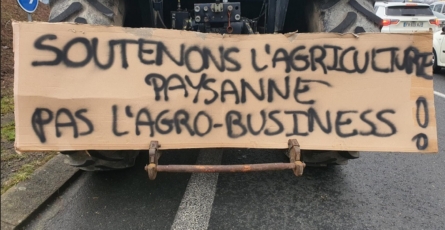 SOUTENONS L'AGRICULTURE
PAYSANNE
PAS L'AGRO-BUSINESS !!